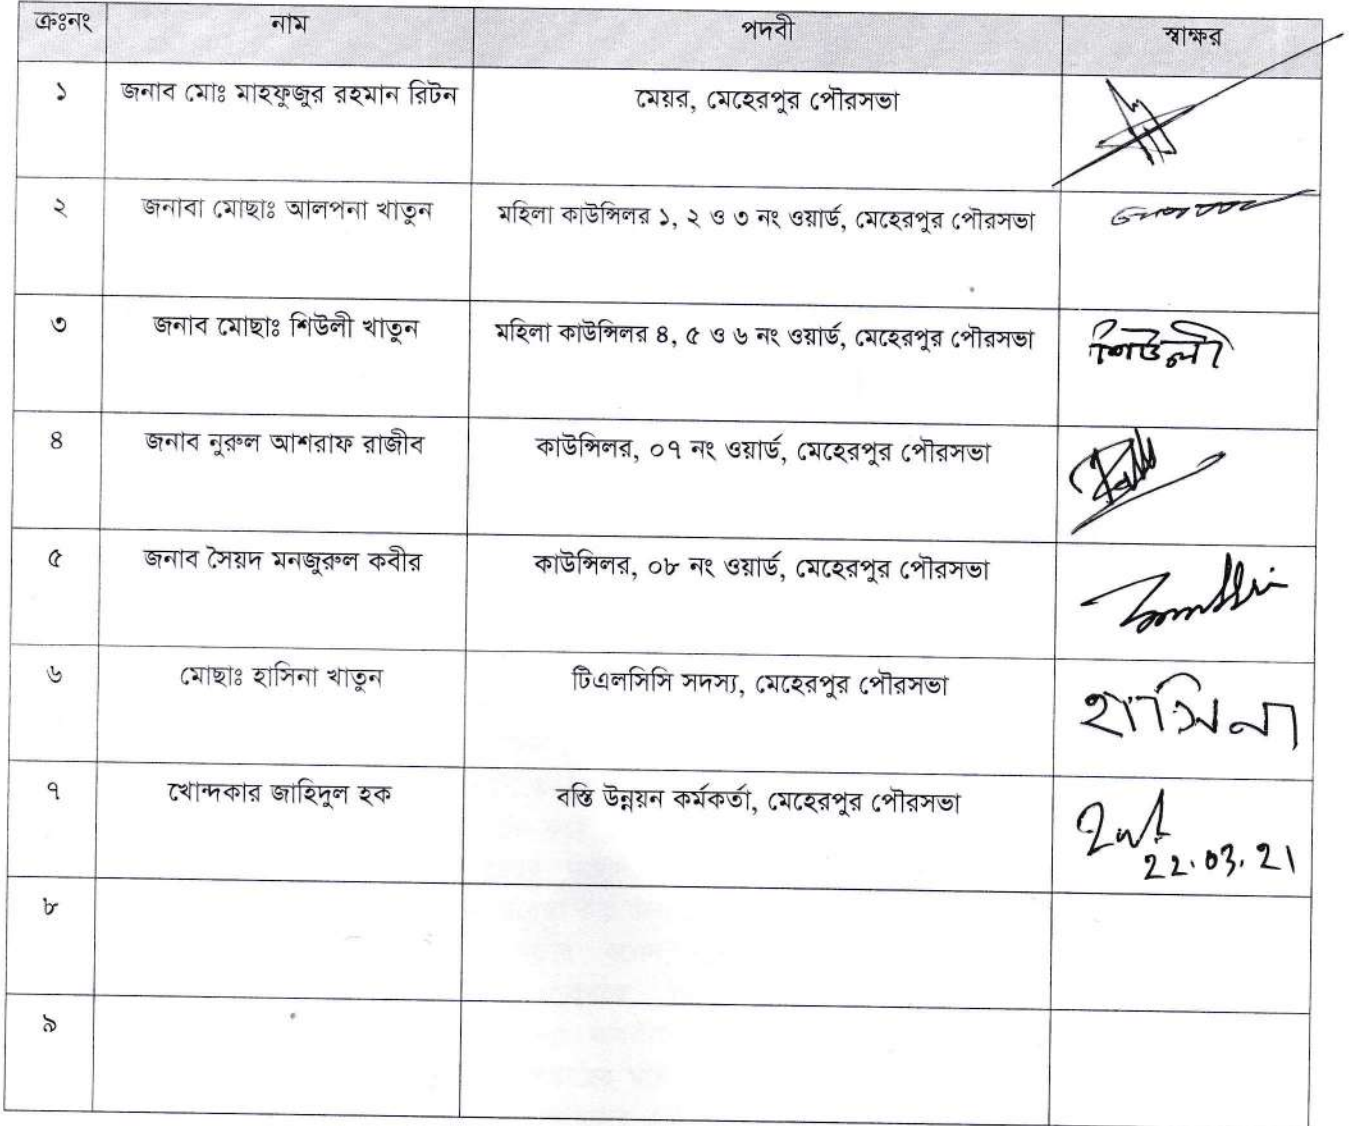 ক্রঃনং নাম পদবী স্বাক্ষর
১ জনাব মোঃ মাহফুজুর রহমান রিটন মেয়র, মেহেরপুর পৌরসভা
২ জনাবা মোছাঃ আলপনা খাতুন মহিলা কাউন্সিলর ১, ২ ও ৩ নং ওয়ার্ড, মেহেরপুর পৌরসভা
৩ জনাব মোছাঃ শিউলী খাতুন মহিলা কাউন্সিলর ৪, ৫ ও ৬ নং ওয়ার্ড, মেহেরপুর পৌরসভা শিউলী
৪ জনাব নুরুল আশরাফ রাজীব কাউন্সিলর, ০৭ নং ওয়ার্ড, মেহেরপুর পৌরসভা
৫ জনাব সৈয়দ মনজুরুল কবীর কাউন্সিলর, ০৮ নং ওয়ার্ড, মেহেরপুর পৌরসভা
৬ মোছাঃ হাসিনা খাতুন টিএলসিসি সদস্য, মেহেরপুর পৌরসভা হাসিনা
৭ খোন্দকার জাহিদুল হক বস্তি উন্নয়ন কর্মকর্তা, মেহেরপুর পৌরসভা
22.03.21
৮
৯